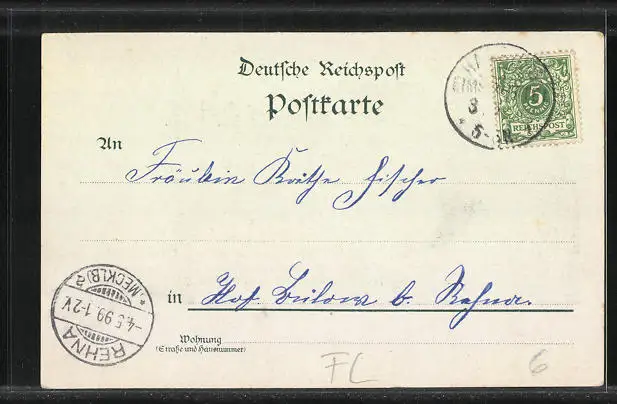 Deutsche Reichspost
Postkarte
5
REICHSPOST
3
5-
An
Fräulein Käthe Fischer
in Hof Bülow b. Rehna.
REHNA
-4.5.99.1-2V
* (MECKLB) 2
Wohnung
(Straße und Hausnummer)
FL
6